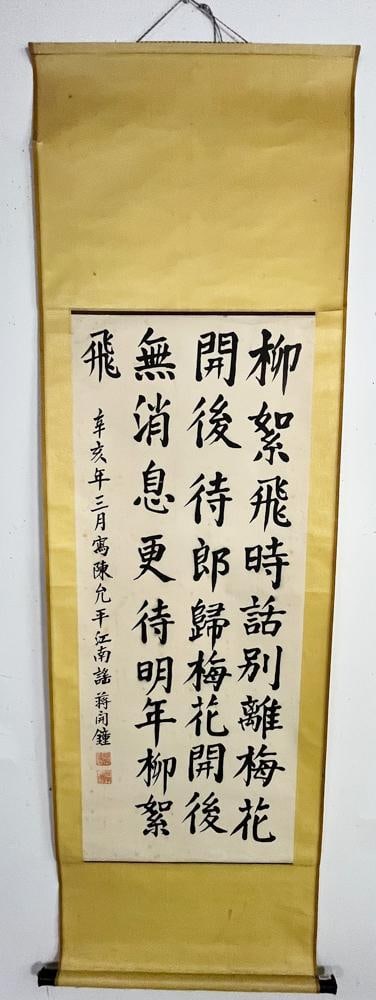 柳絮飛時話別離梅花
開後待郎歸梅花開後
無消息更待明年柳絮
飛
辛亥年三月寫陳允平江南謠蔣開鐘